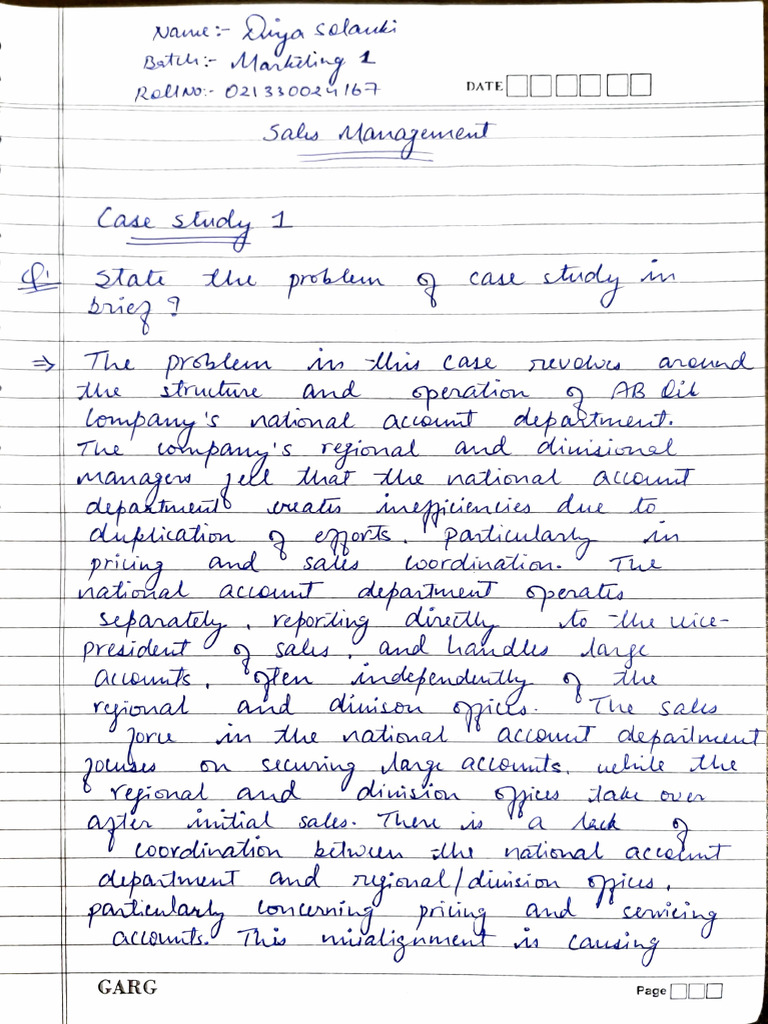 Name:- Diya Solanki
Batch:- Marketing 1
Roll No:- 021330024167
DATE
Sales Management
Case study 1
Q1. State the problem of case study in
brief?
⇒ The problem in this case revolves around
the structure and operation of AB Oil
Company's national account department.
The company's regional and divisional
managers feel that the national account
department creates inefficiencies due to
duplication of efforts, particularly in
pricing and sales coordination. The
national account department operates
separately, reporting directly to the vice-
president of sales, and handles large
accounts, often independently of the
regional and divison offices. The sales
force in the national account department
focuses on securing large accounts, while the
regional and division offices take over
after initial sales. There is a lack of
coordination between the national account
department and regional/division offices,
particularly concerning pricing and servicing
accounts. This misalignment is causing
GARG
Page